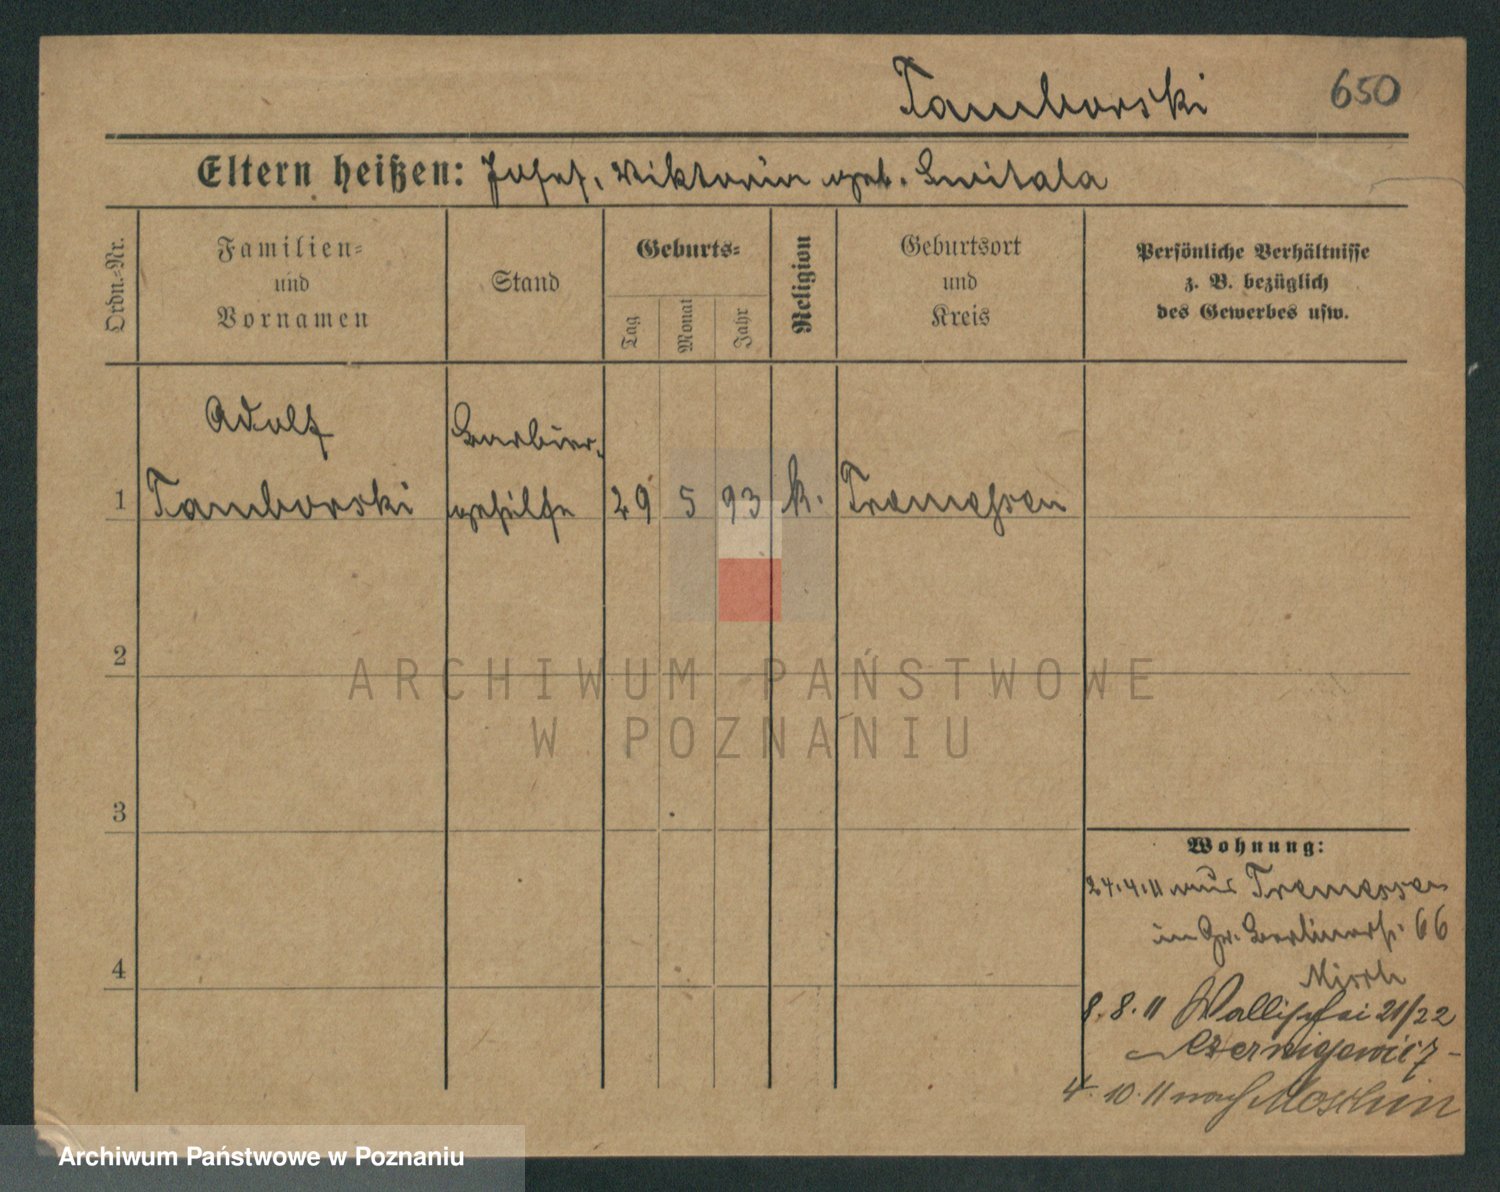 Tamborski 650
Eltern heißen: Josef, Viktoria geb. Switala
Ordn.=Nr.
Familien=
und
Vornamen
Stand
Geburts=
Tag
Monat
Jahr
Religion
Geburtsort
und
Kreis
Persönliche Verhältnisse
z. B. bezüglich
des Gewerbes usw.
Adolf Barbier-
1 Tamborski gehilfe 29 5 93 k. Tremessen
2
ARCHIWUM PAŃSTWOWE
W POZNANIU
3
Wohnung:
24.4.11 aus Tremessen
in Gr. Berlinerst. 66
4
8.8.11 Wallischei 21/22
4.10.11 nach Moschin
Archiwum Państwowe w Poznaniu